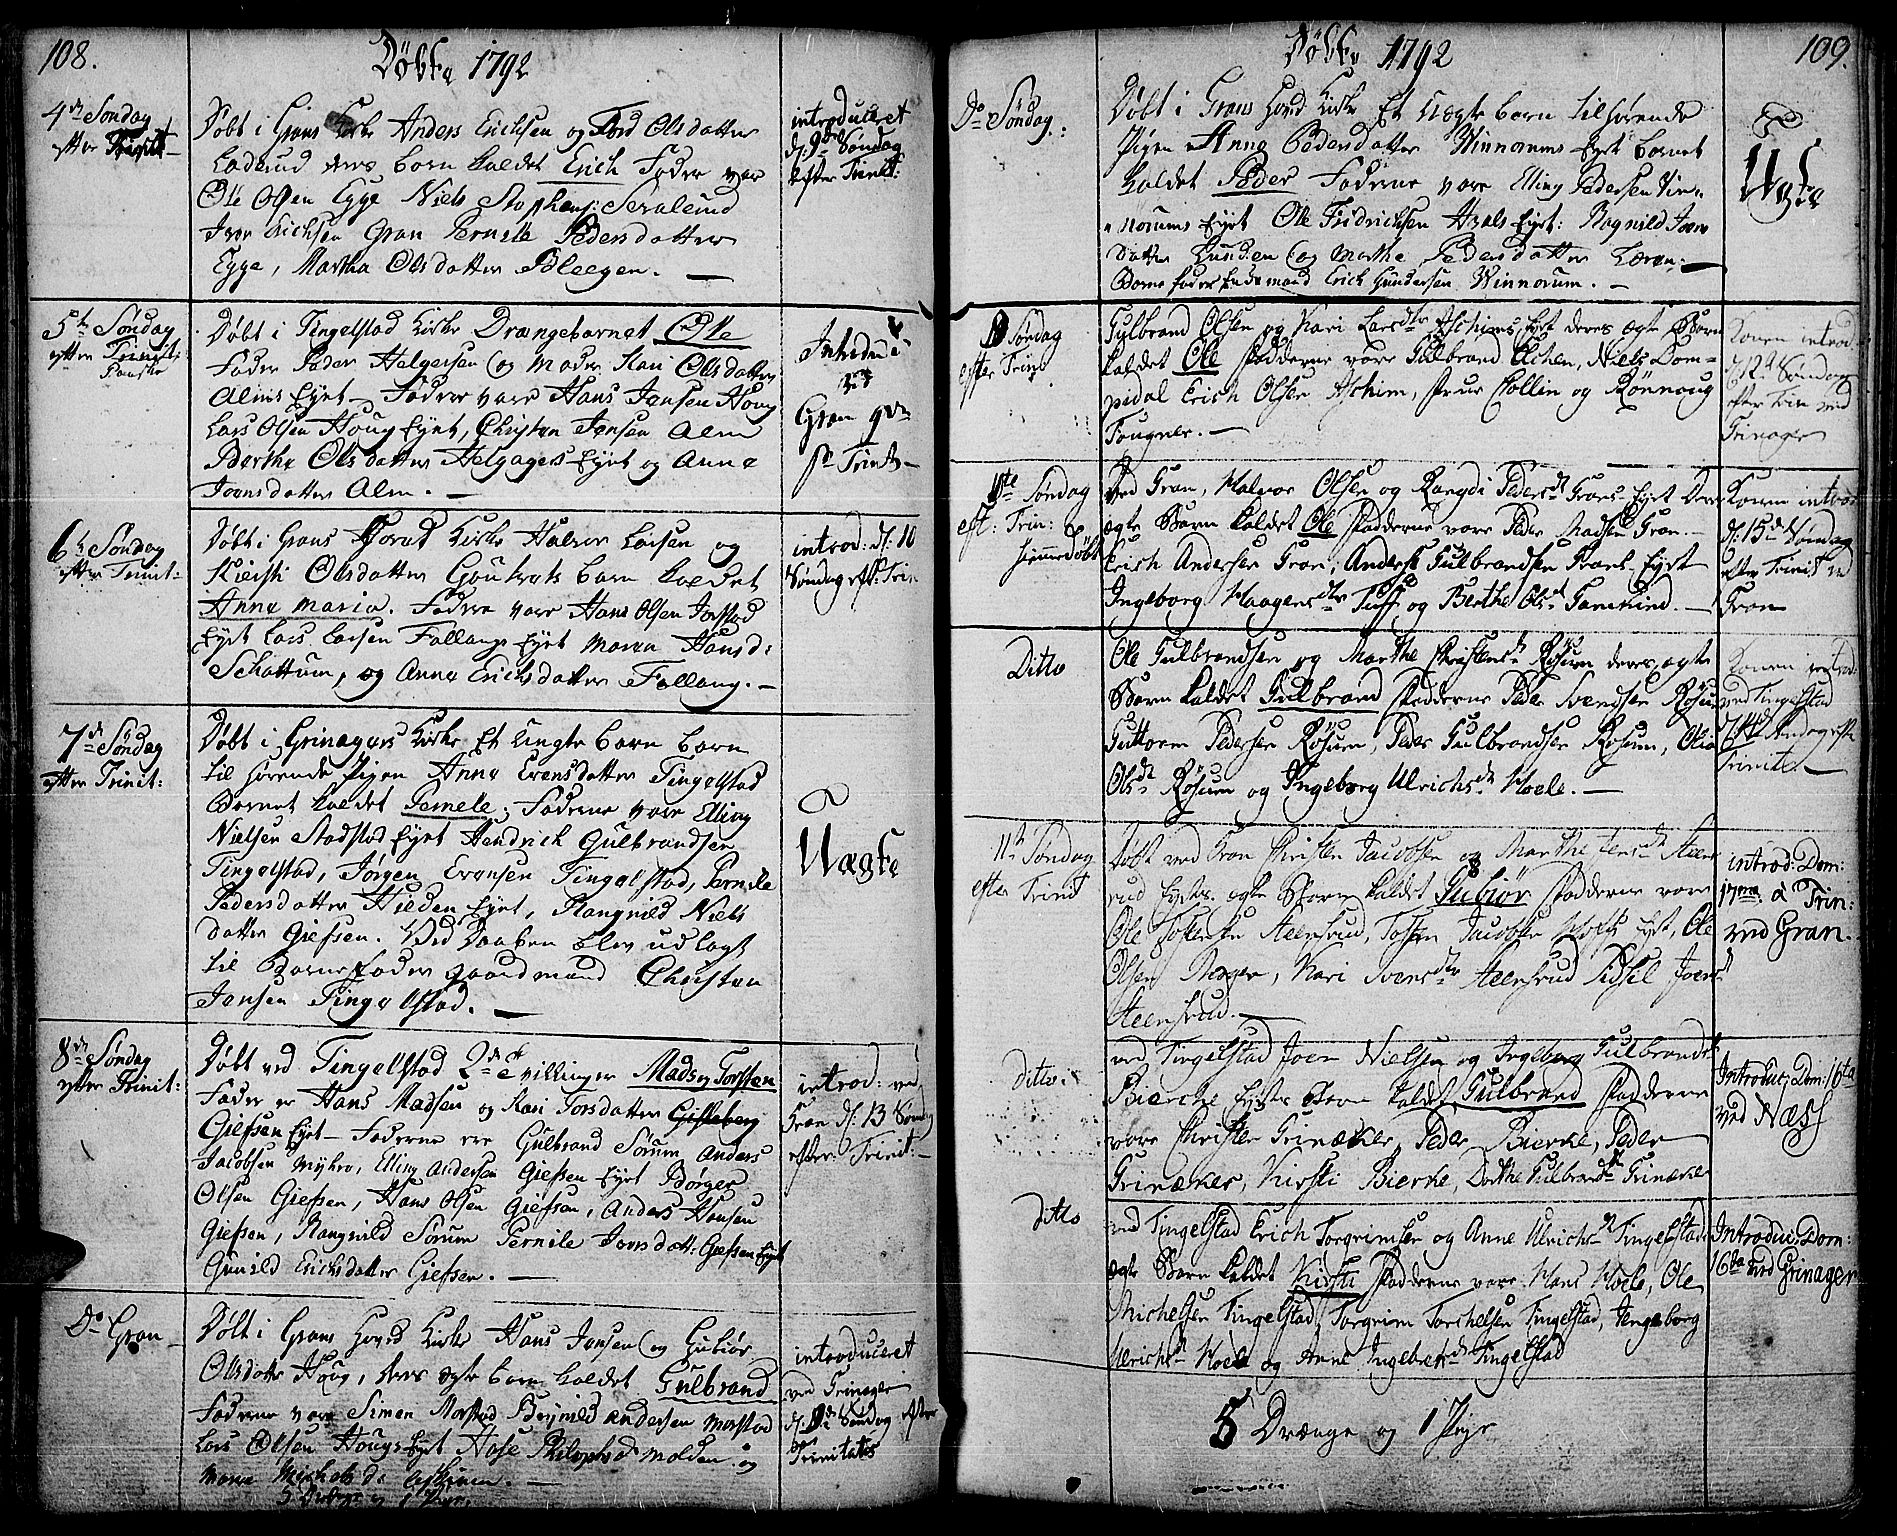 108.
Döbte 1792
4de Søndag
efter Trinit
Døbt i Grans Kirke Anders Erichsen og Olsdatter
deres barn kaldet Erich Fadder var
Ole Olsen Egge Niels
Iver Erichsen Gran Pernele Pedersdatter
Egge, Martha Olsdatter Bleegen. —
introduceret
d. 9de Søndag
efter Trinit:
5te Søndag
efter Trinit:
Døbt i Tingelstad Kirke Drængebarnet Ole
Fader Peder Helgersen og Moder Kari Olsdatter
Alms Eyet — Faddere vare Hans Jonsen Houg
Lars Olsen Houg Eyet, Christen Jensen Alm
Berthe Olsdatter Helgagers Eyet og Anne
Joensdatter Alm. —
Gran 9de
p. Trinit —
6te Søndag
efter Trinit:
Døbt i Grans Hoved Kirke Halvor Larsen og
Kiersti Olsdatter barn kaldet
Anne Maria. Faddere vare Hans Olsen Jorstad
Eyet Lars Larsen Follang Eyet Maren Hansd:
Schattum, og Anne Erichsdatter Follang. —
introd: d: 10
Søndag eft: Trin
7de Søndag
efter Trinit:
Døbt i Grinagers Kirke Et uægte barn barn
til hørende Pigen Anne Evensdatter Tingelstad
Barnet kaldet Pernele; Fadderne vare Elling
Nielsen Stadstad Eyet Hendrich Gulbrandsen
Tingelstad, Jørgen Evensen Tingelstad, Pernile
Pedersdatter Hilden Eyet, Rangnild Niels
datter Giefsen. Ved Daaben blev udlagt
til Barnefader gaardmand Christen
Jensen Tingelstad. —
Uægte
8de Søndag
efter Trinit:
Døbt ved Tingelstad 2de Tvillinger Mads og Torsten
Fader er Hans Madsen og Kari Torsdatter Gisleberg
Giefsen Eyet — Fadderne ere Gulbrand Sørum Anders
Jacobsen Myhre, Elling Andersen Giefsen Eyet Børger
Olsen Giefsen, Hans Olsen Giefsen, Anders Hansen
Giefsen, Rangnild Sørum Pernile Joensdatt: Giefsen Eyet
Gunild Erichsdatter Giefsen. —
introd: ved
Gran d: 13 Søndag
efter Trinit: —
Do Gran
Døbt i Grans Hoved Kirke Hans Jensen og Gubiør
Olsdatter Houg, deres ægte barn kaldet Gulbrand
Fadderne vare Simen Morstad Andersen Morstad
Lars Olsen Hougs Eyet Molden og
Maren Michels d:
introduceret
ved Grinager
d. Søndag efter
Trinitatis
109.
Döbte 1792
Do Søndag:
Døbt i Grans Hoved Kirke Et uægte barn tilhørende
Pigen Anne Pedersdatter Winnorums Eyet barnet
kaldet Peder Fadderne vare Elling Pedersen Vin-
norums Eyet Ole Fridrichsen Eyet: Ragnild Joens
datter Lunden og Marthe Pedersdatter
Barnefader Erich Gundersen Winnorum. —
Uægte
Søndag
efter Trin:
Gulbrand Olsen og Kari Larsdtr Aschims Eyet deres ægte Barn
kaldet Ole Fadderne vare Gulbrand Echen, Niels Dom-
pedal Erich Olsen Aschim, Frue Collin og Rønnoug
Tougner. —
Konen introd:
d 12te Søndag
efter Trin ved
Grinager
Søndag
eft: Trin:
hjemmedøbt
Ved Gran, Halvor Olsen og Rangdi Pedersdt Grans Eyet Deres
ægte Barn kaldet Ole Fadderne vare Peder Madsen Gran. —
Erich Andersen Gran, Anders Gulbrandsen Grans Eyet
Ingeborg Haagensdtr Tuff og Berthe Olsdt —
Konen introd
d: 15de Søndag
efter Trinit ved
Gran
Ditto
Ole Gulbrandsen og Marthe Christensdt Røsum deres ægte
Barn kaldet Gulbrand Fadderne Peder Svendsen Røsum
Guttorm Pedersen Røsum, Peder Gulbrandsen Røsum, Olia
Olsdt Røsum og Ingeborg Ulrichsdt Hoele. —
Konen introd:
ved Tingelstad
d. 14de Søndag eft
Trinit. —
11te Søndag
efter Trinit
Døbt ved Gran Christen Jacobsen og Marthe Jensdt Steens
rud Eyets ægte Barn kaldet Gubiør Fadderne vare
Ole Steensrud, Torsten Jacobsen Eyet, Ole
Olsen, Kari Svensdtr Steensrud Sidsel Joensdt
Steensrud. —
introd: Dom:
17ma à Trin:
ved Gran.
ditto
ved Tingelstad Joen Nielsen og Ingeborg Gulbrandsdt
Bierche Eyets Barn kaldet Gulbrand Fadderne
vare Christen Grinæker, Peder Bierke, Peder
Grinæker, Kirsti Bierke, Dorthe Gulbrandsdt Grinæker
Introduc: Dom: 16ta
ved Næss
ditto
ved Tingelstad Erich Torgrimsen og Anne Ulrichsdt Tingelstad
ægte Barn kaldet Kirsti Fadderne vare Hans Hoele, Ole
Michelsen Tingelstad Torgrim Torchelsen Tingelstad, Jengeborg
Ulrichsdt Hoele og Anne Ingebrethsdt Tingelstad
Introduc: Dom:
16ta ved Grinager
5 Drænge og 1 Pige